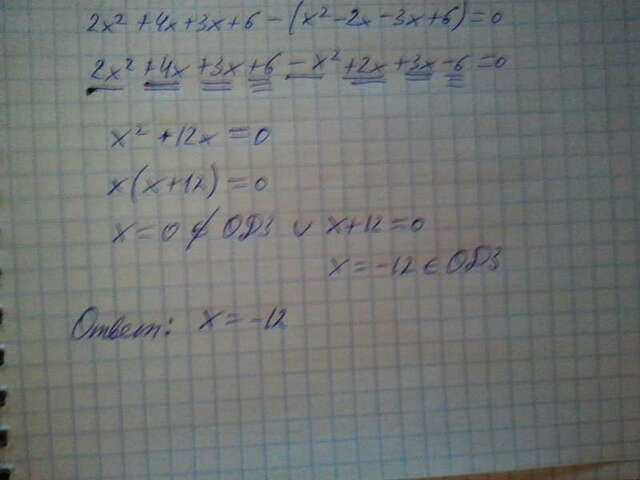 2x² + 4x + 3x + 6 - (x² - 2x - 3x + 6) = 0
2x² + 4x + 3x + 6 - x² + 2x + 3x - 6 = 0
x² + 12x = 0
x(x + 12) = 0
x = 0 ∉ ОДЗ ∪ x + 12 = 0
x = -12 ∈ ОДЗ
Ответ: x = -12